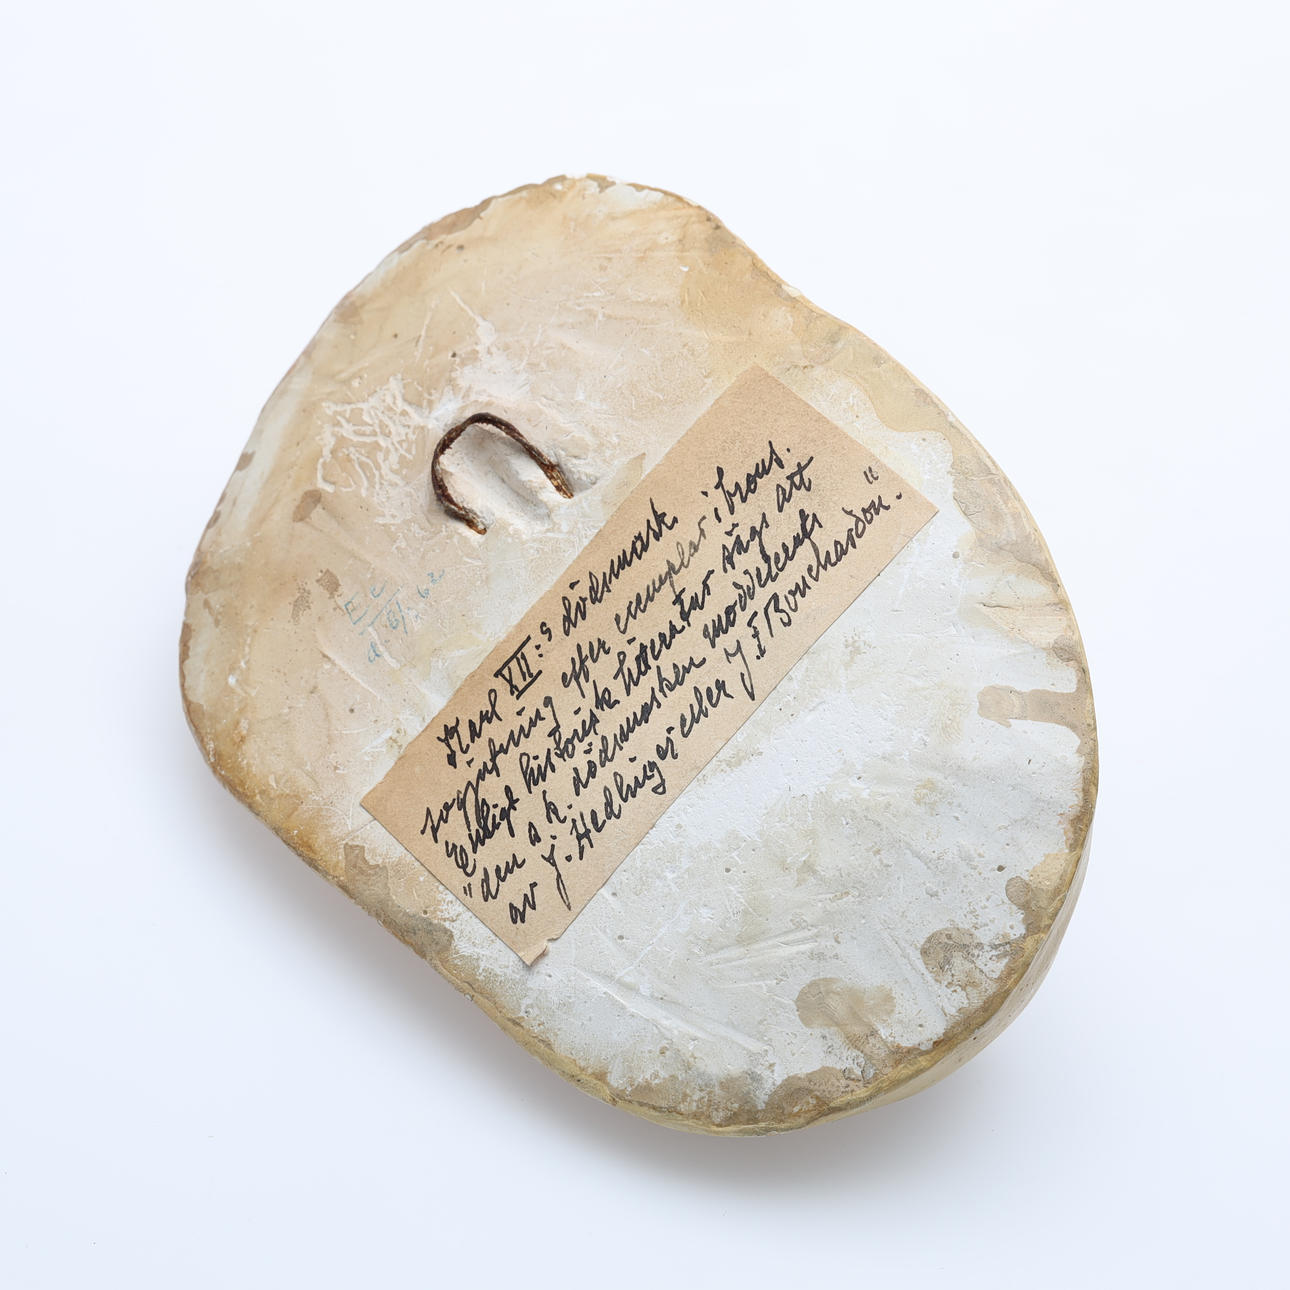 Karl XII:s dödsmask.
avgjutning efter exemplar i brons.
Enligt historisk litteratur sägs att
"den s k. dödsmasken modellerats
av J. Hedlinger eller J.F Bouchardon."
E C